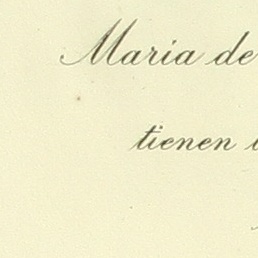 Maria de
tienen